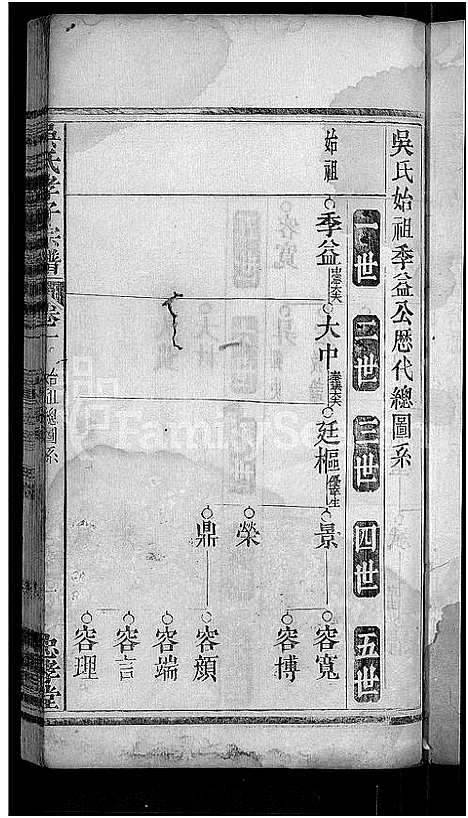 吳氏始祖季益公歷代總圖系
一世 二世 三世 四世 五世
始祖
季益
大中
廷樞
景
榮
鼎
容寬
容博
容顏
容端
容言
容理
吳氏孝子宗譜
卷一
始祖總圖系
忠孝堂
FamilySe